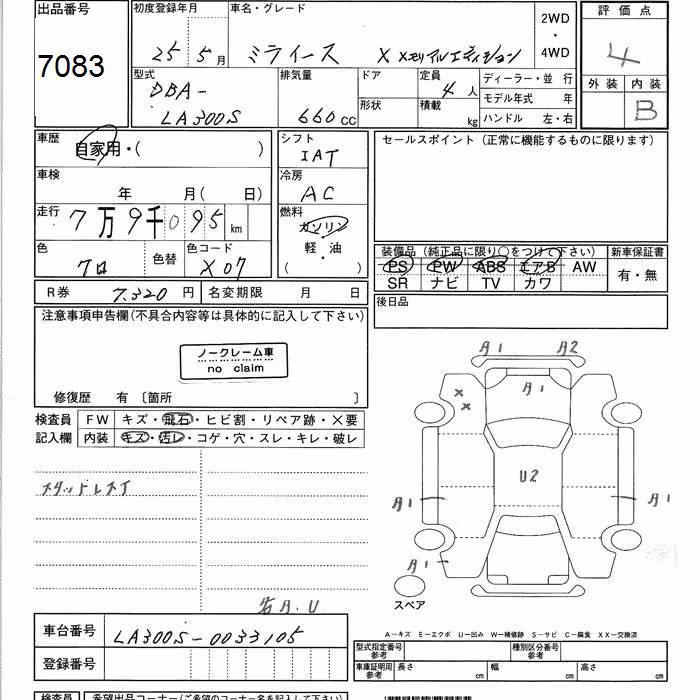 出品番号 初度登録年月 車名・グレード 2WD・4WD 評価点
7083 25 5月 ミライース X メモリアルエディション 4
型式 排気量 ドア 定員 ディーラー・並 行 外装 内装
DBA- 4人 モデル年式 年 B
LA300S 660cc 形状 積載 kg ハンドル 左・右
車歴 自家用・( ) シフト セールスポイント(正常に機能するものに限ります)
IAT
車検 年 月(日) 冷房
AC
走行 7万9千095km 燃料
ガソリン
色 色替 色コード 軽・油 装備品(純正品に限り○をつけて下さい) 新車保証書
クロ X07 ( ) PS PW ABS エアB AW 有・無
SR ナビ TV カワ
R券 7.320円 名変期限 月 日 後日品
注意事項申告欄(不具合内容等は具体的に記入して下さい)
ノークレーム車
no claim
修復歴 有 〔箇所 〕
検査員 FW キズ・飛石・ヒビ割・リペア跡・X要
記入欄 内装 キズ・汚レ・コゲ・穴・スレ・キレ・破レ
A1 A2
A1
U2
A1 A1
A1
スペア
A.U
A-キズ E-エクボ U-凹み W-補修跡 S-サビ C-腐食 XX-交換済
車台番号 LA300S-0033105
型式指定番号 参考 種別区分番号 参考
登録番号
車庫証明用 参考 長さ cm 幅 cm 高さ cm
検査員 希望出品コーナー(ご希望のコーナー名を記入して下さい)